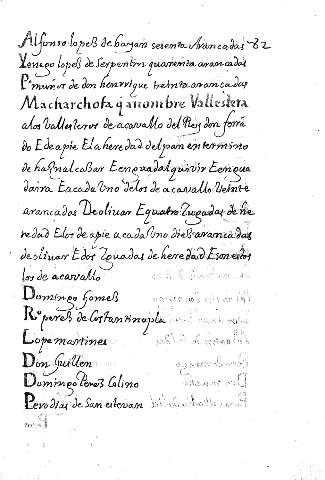 Alfonso lopeß de bayan sesenta Arancadas 82
Yenego lopeß de serpentin quarenta arancadas
Pº munoß de don henrrique treinta arancadas
Macharchofa q a nombre Vallestera
a los vallesteros de a cavallo del Rey don ferrã
do E de a pie E la heredad del pan en termino
de haßnalcaßar E en guadalquivir E en gua
daira E a cada uno de los de a cavallo veinte
arancadas De olivar E quatro Yugadas de he
redad E los de a pie a cada uno dieß arancadas
de olivar E dos Yguadas de heredad E son estos
los de a cavallo
Domingo Gomeß
Rº pereß de Costantinopla
Lope martines
Don Guillen
Domingo Pereß Colino
Pero dias de San estevan